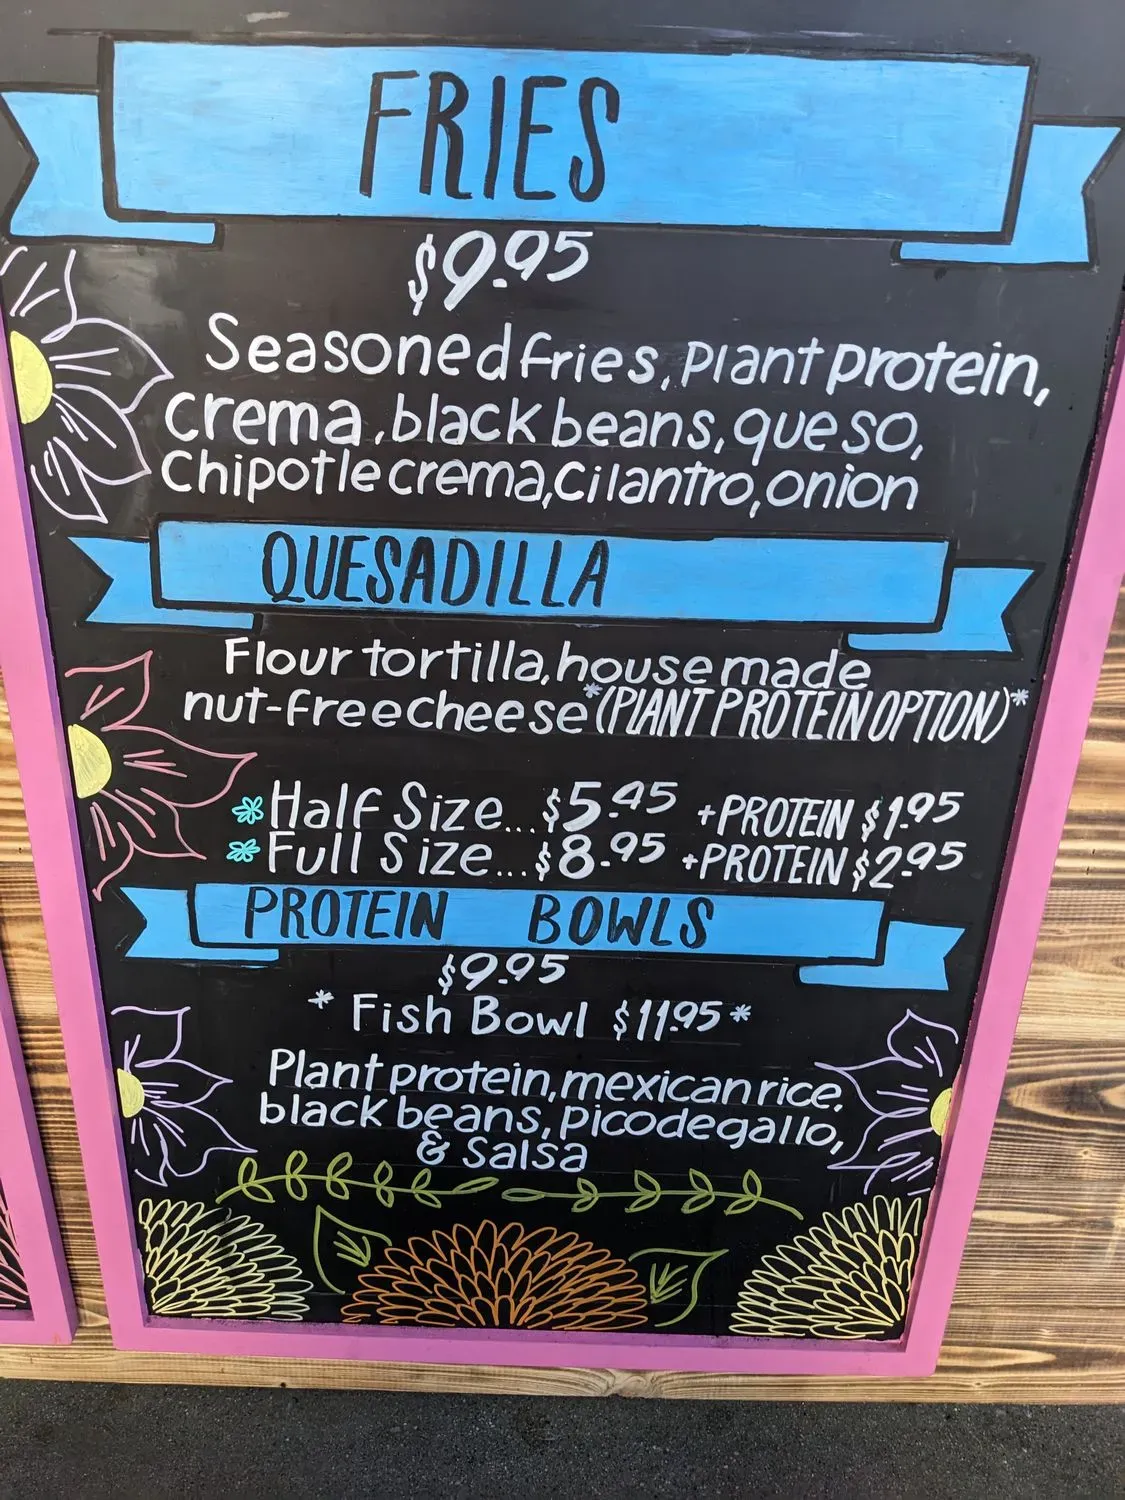 FRIES
$9.95
Seasoned fries, Plant protein,
crema, black beans, queso,
Chipotle crema, cilantro, onion
QUESADILLA
Flour tortilla, housemade
nut-free cheese *(PLANT PROTEIN OPTION)*
Half Size... $5.45 +PROTEIN $1.95
Full Size... $8.95 +PROTEIN $2.95
PROTEIN BOWLS
$9.95
* Fish Bowl $11.95 *
Plant protein, mexican rice.
black beans, pico de gallo,
& Salsa